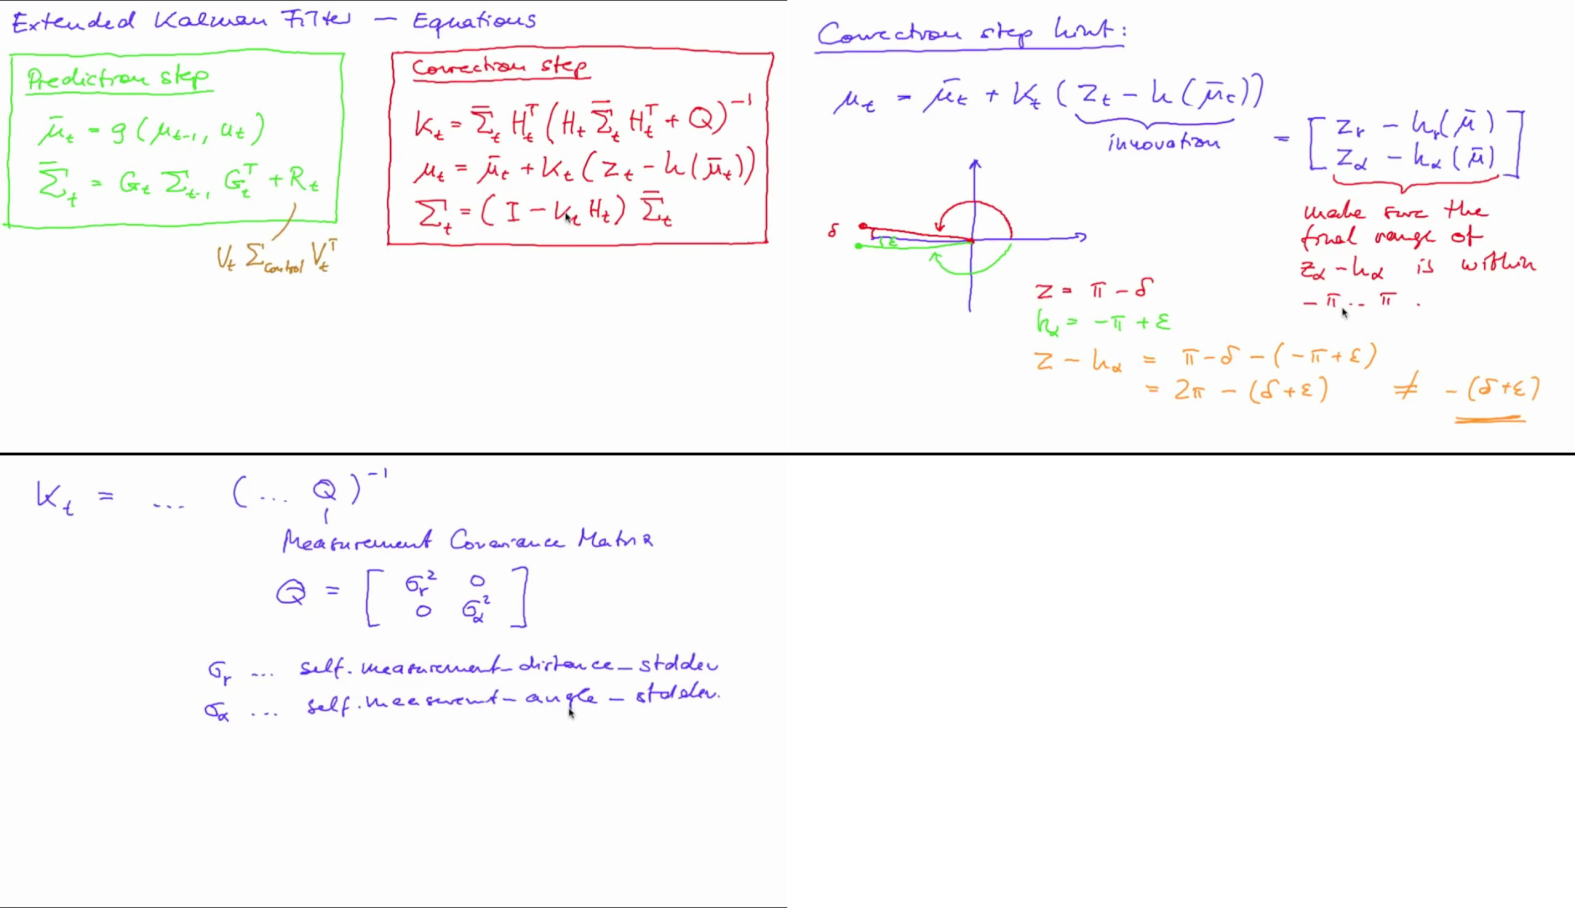 Extended Kalman Filter – Equations
Prediction step
μ̄ₜ = g(μₜ₋₁, uₜ)
Σ̄ₜ = Gₜ Σₜ₋₁ Gₜᵀ + Rₜ
Vₜ Σcontrol Vₜᵀ
Correction step
Kₜ = Σ̄ₜ Hₜᵀ (Hₜ Σ̄ₜ Hₜᵀ + Q)⁻¹
μₜ = μ̄ₜ + Kₜ (zₜ – h(μ̄ₜ))
Σₜ = (I – Kₜ Hₜ) Σ̄ₜ
Correction step hint:
μₜ = μ̄ₜ + Kₜ (zₜ – h(μ̄ₜ))
innovation
= [ z_r – h_r(μ̄)
z_α – h_α(μ̄) ]
make sure the
final range of
z_α – h_α is within
–π .. π .
δ
ε
z = π – δ
h_α = –π + ε
z – h_α = π – δ – (–π + ε)
= 2π – (δ + ε) ≠ –(δ + ε)
Kₜ = ... (... Q)⁻¹
Measurement Covariance Matrix
Q = [ σ_r² 0
0 σ_α² ]
σ_r ... self.measurement_distance_stddev
σ_α ... self.measurement_angle_stddev.